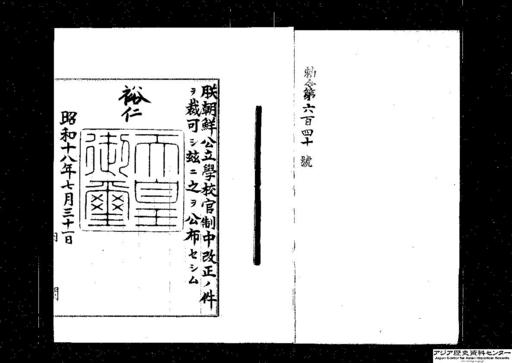 勅令第六百四十號
朕朝鮮公立學校官制中改正ノ件
ヲ裁可シ茲ニ之ヲ公布セシム
裕仁
天皇
御璽
昭和十八年七月三十一日
アジア歴史資料センター
Japan Center for Asian Historical Records